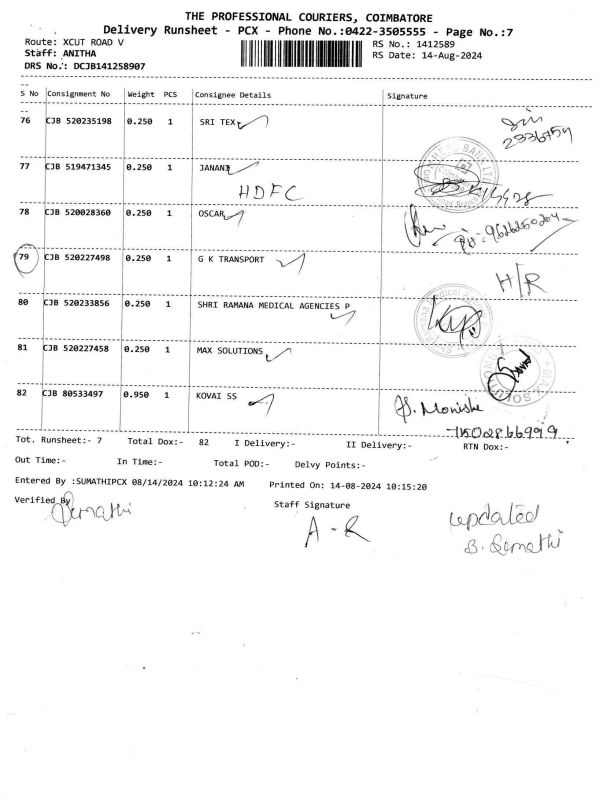 THE PROFESSIONAL COURIERS, COIMBATORE
Delivery Runsheet - PCX - Phone No.:0422-3505555 - Page No.:7
Route: XCUT ROAD V RS No.: 1412589
Staff: ANITHA RS Date: 14-Aug-2024
DRS No.: DCJB141258907
S No Consignment No Weight PCS Consignee Details Signature
76 CJB 520235198 0.250 1 SRI TEX
2336759
77 CJB 519471345 0.250 1 JANANI
HDFC
78 CJB 520028360 0.250 1 OSCAR
79 CJB 520227498 0.250 1 G K TRANSPORT
H/R
80 CJB 520233856 0.250 1 SHRI RAMANA MEDICAL AGENCIES P
81 CJB 520227458 0.250 1 MAX SOLUTIONS
82 CJB 80533497 0.950 1 KOVAI SS
Monisha
Tot. Runsheet:- 7 Total Dox:- 82 I Delivery:- II Delivery:- RTN Dox:-
Out Time:- In Time:- Total POD:- Delvy Points:-
Entered By :SUMATHIPCX 08/14/2024 10:12:24 AM Printed On: 14-08-2024 10:15:20
Verified By Staff Signature
A-R
updated